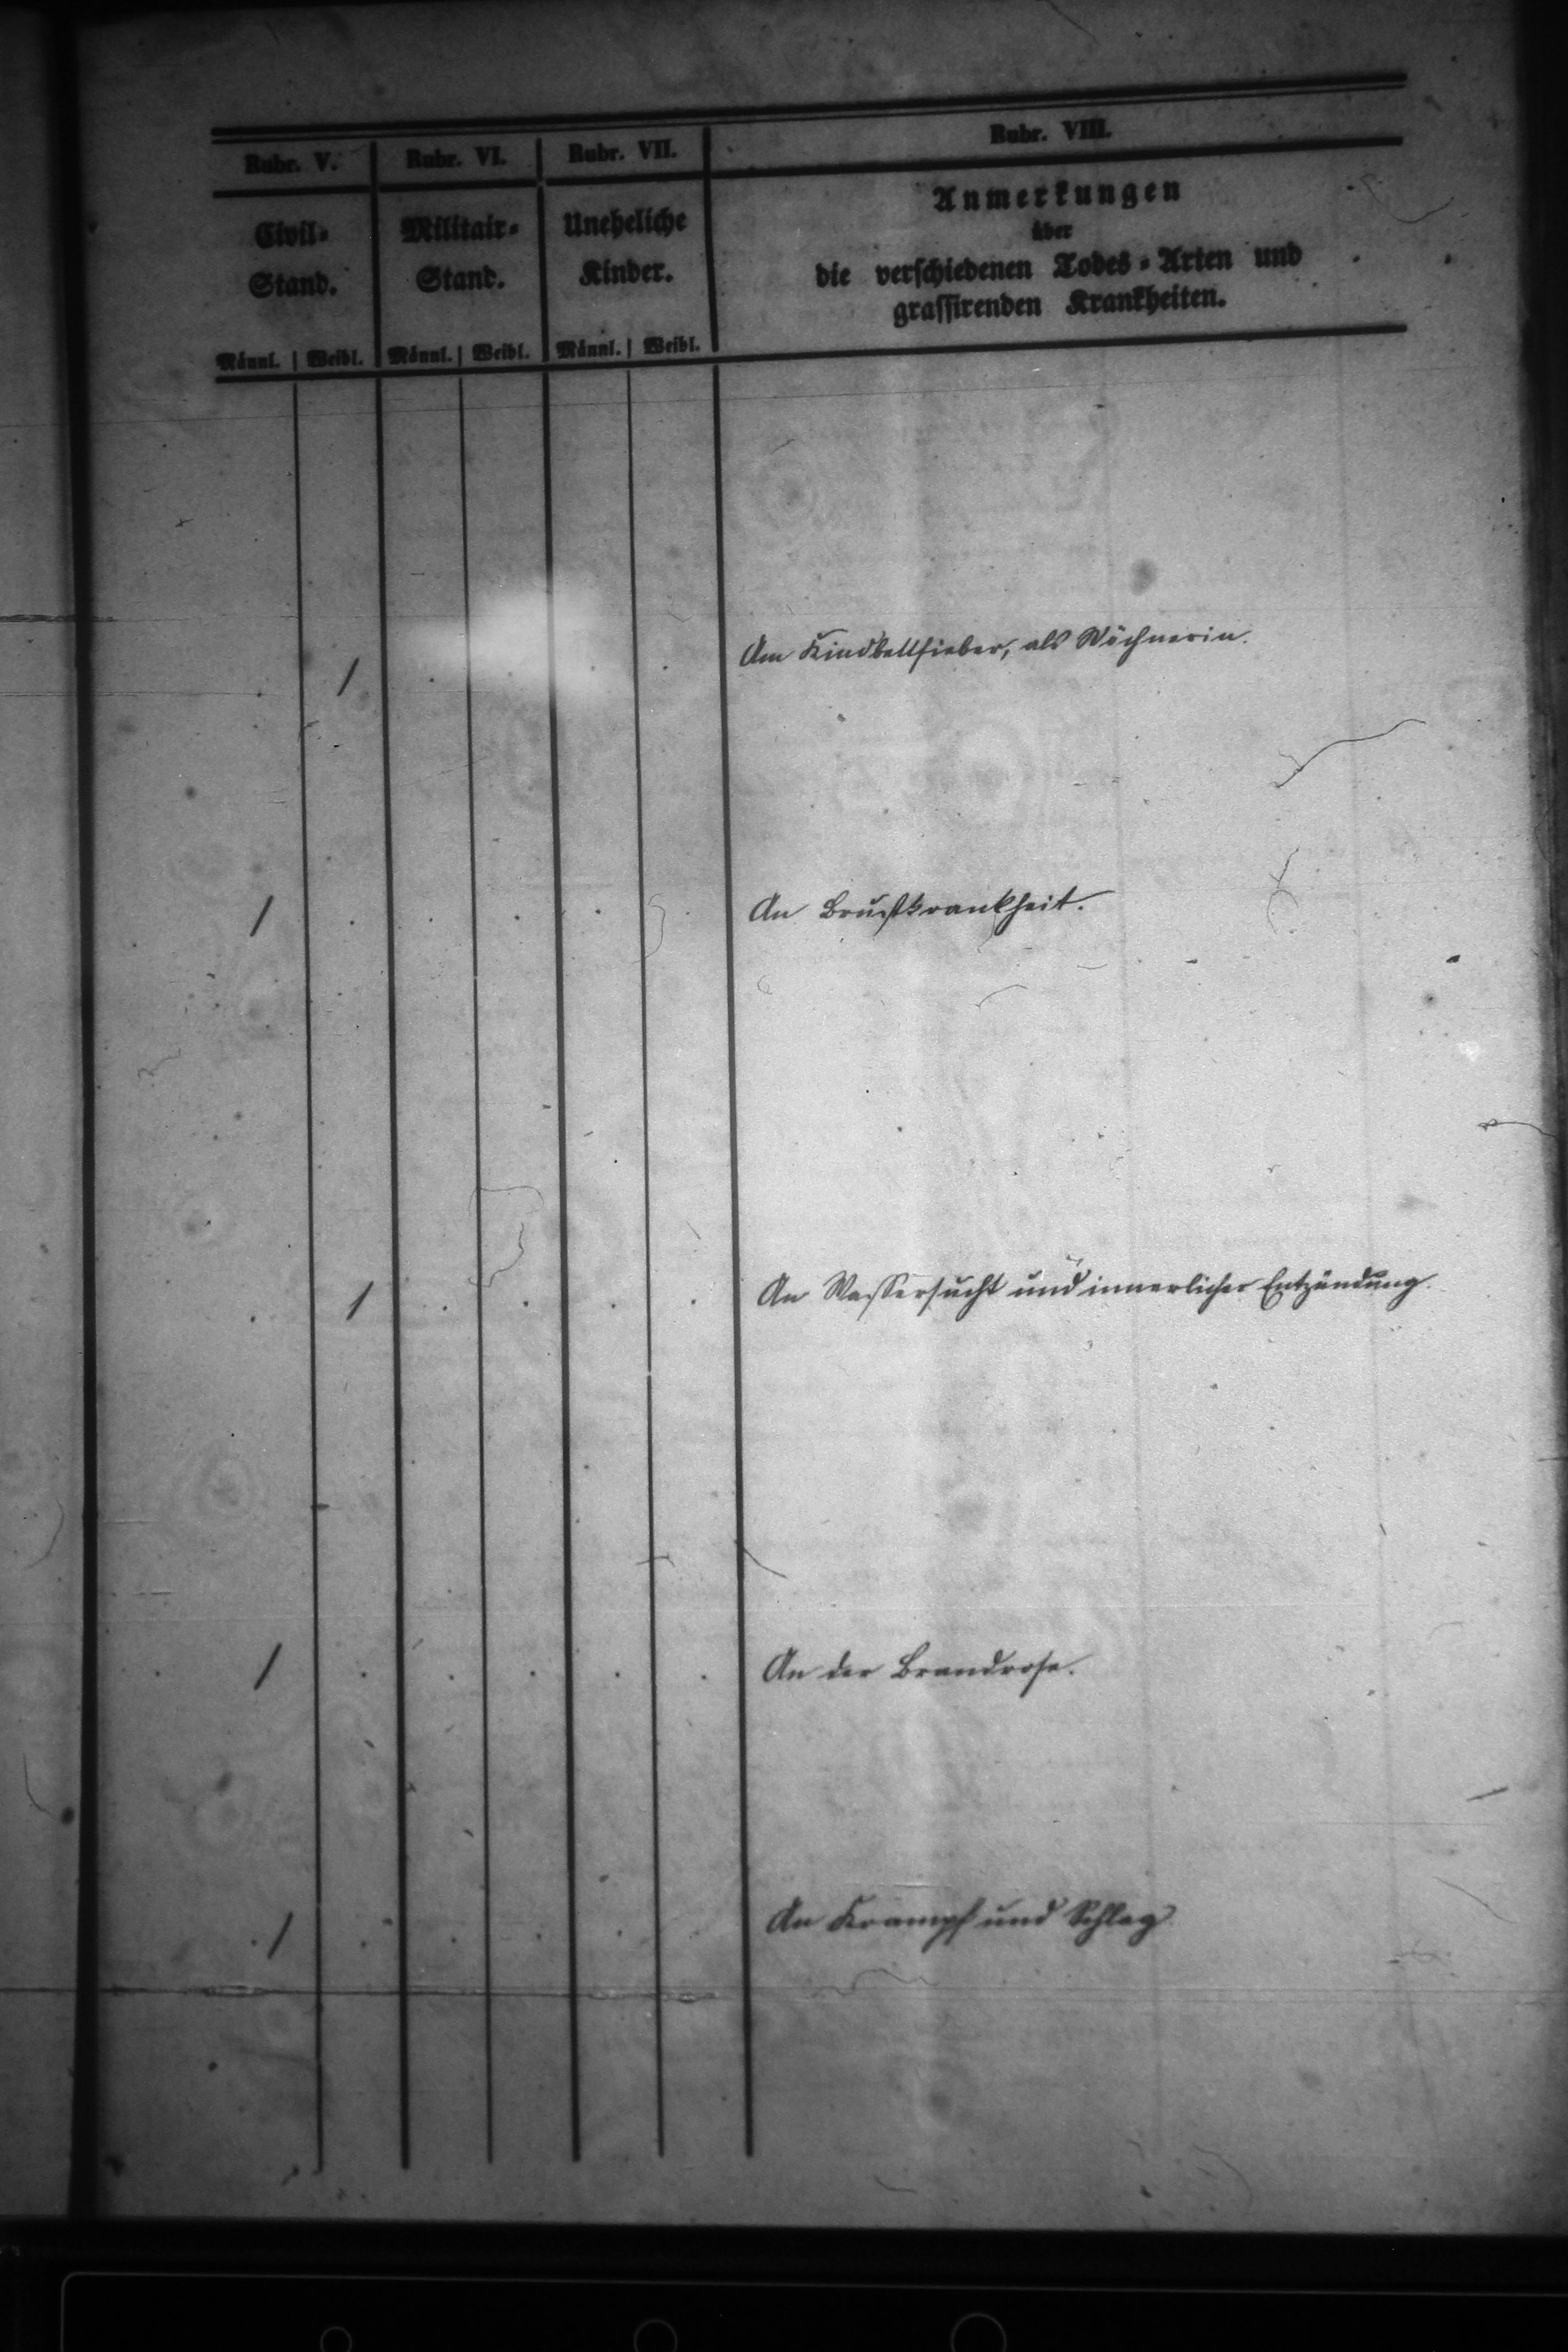 Rubr. V. Rubr. VI. Rubr. VII. Rubr. VIII.
Civil- Militair- Uneheliche Anmerkungen
Stand. Stand. Kinder. über
die verschiedenen Todes-Arten und
grassirenden Krankheiten.
Männl. | Weibl. Männl. | Weibl. Männl. | Weibl.
1 Am Kindbettfieber, als Wöchnerin.
1 An Brustkrankheit.
1 An Wassersucht und innerlicher Entzündung.
1 An der Brandrose.
1 An Krampf und Schlag